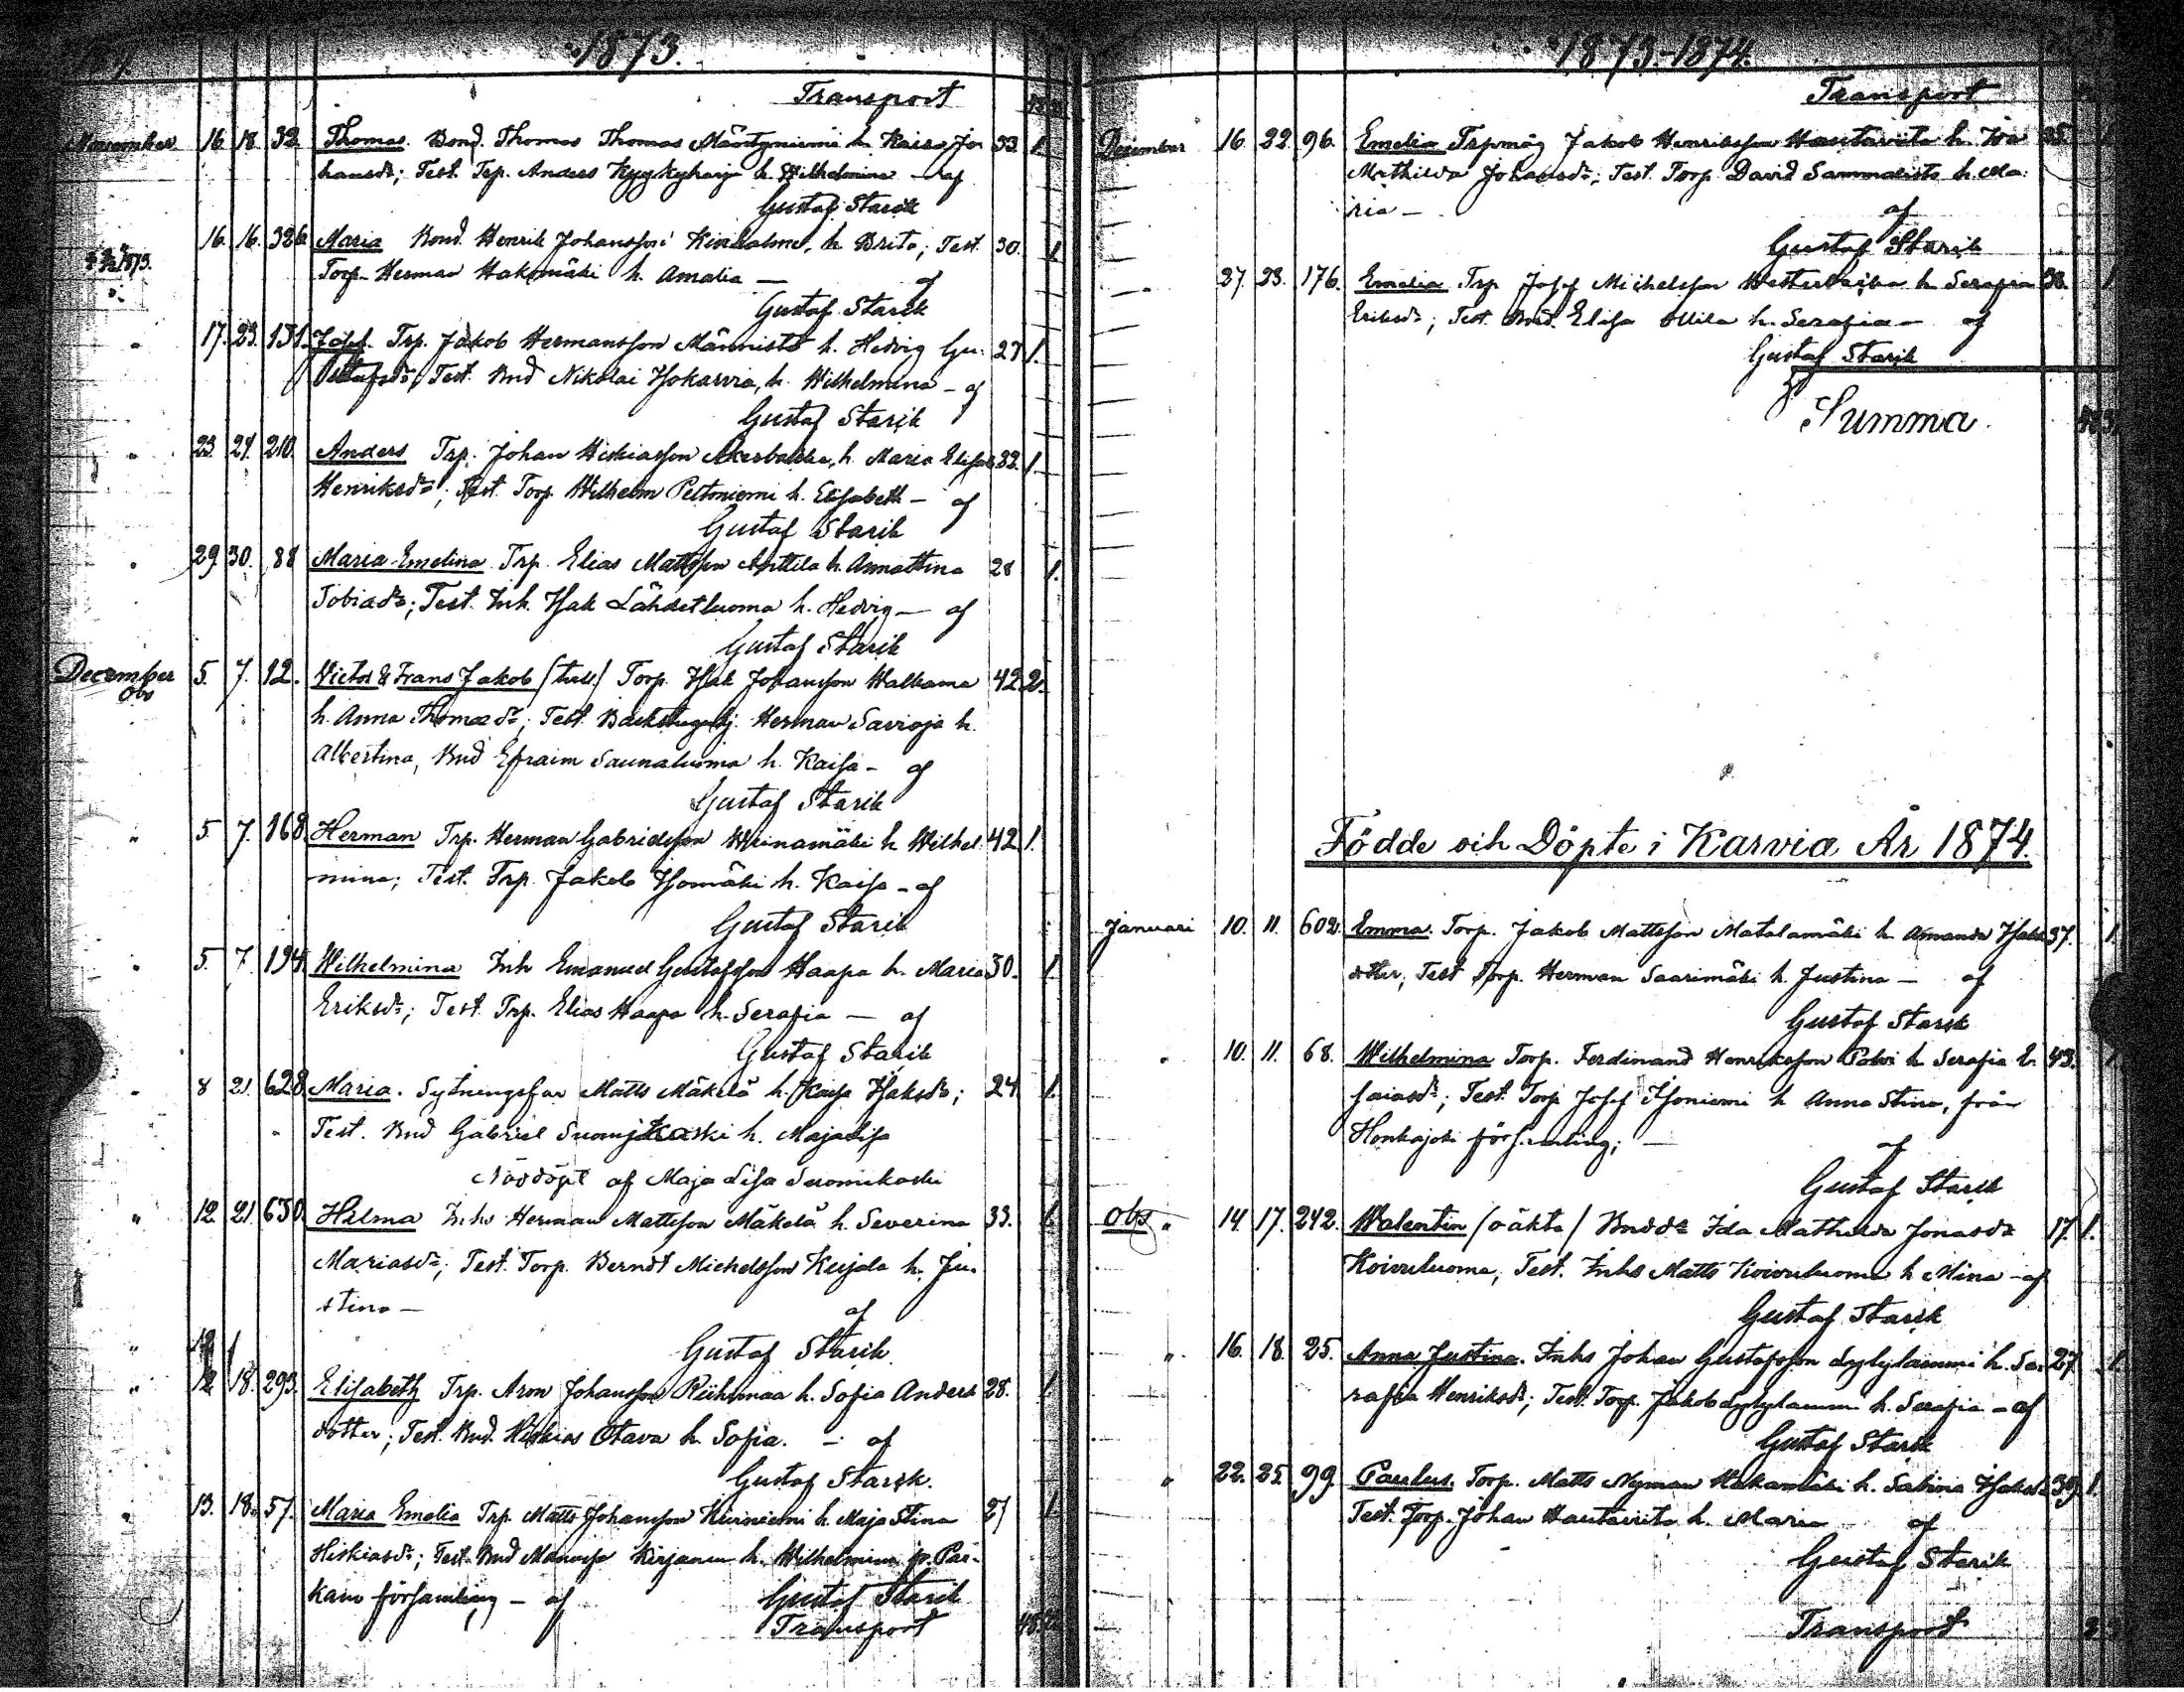 1873.
Transport
November 16. 18. 32. Thomas. Bond. Thomas Thomas Mäntyniemi h. Kaisa Jo 33. 1.
hansdr; Test. Trp. Anders Kyykyharju h. Wilhelmina — af
Gustaf Starck
16. 16. 326. Maria Bond. Henrik Johansson h. Brita; Test. 30. 1
Torp. Herman Hakomäki h. Amalia — af
Gustaf Starck
" 17. 23. 131. Josef. Trp. Jakob Hermansson Männistö h. Hedvig Gu- 27 1.
stafsdr; Test. Bnd Nikolai Isokarvia, h. Wilhelmina — af
Gustaf Starck
" 23. 24. 210. Anders Trp. Johan Hiskiasson h. Maria Elisab 32. 1.
Henriksdr; Test. Torp. Wilhelm Peltoniemi h. Elisabeth — af
Gustaf Starck
" 29. 30. 88 Maria Emelina Trp. Elias Mattsson Anttila h. Annastina 28 1.
Tobiasdr; Test. Inh. Isak Lähdetluoma h. Hedvig — af
Gustaf Starck
December 5. 7. 12. Victor & Frans Jakob (tvill.) Torp. Isak Johansson Walkama 42. 2.
Obs
h. Anna Thomasdr; Test. Backstugusj. Herman Savioja h.
Albertina, Bnd Efraim Saunaluoma h. Kaisa — af
Gustaf Starck
" 5. 7. 168. Herman Trp. Herman Gabrielsson Weinamäki h. Wilhel- 42 1.
mina; Test. Trp. Jakob Isomäki h. Kaisa — af
Gustaf Starck
" 5. 7. 194. Wilhelmina Inh Emanuel Gustafsson Haapa h. Maria 30. 1.
Eriksdr; Test. Trp. Elias Haapa h. Serafia — af
Gustaf Starck
" 8 21. 628. Maria. Sytningsfar Matts Mäkelä h. Kajsa Isaksdr; 24. 1.
Test. Bnd Gabriel h. Maja Lisa
Nöddöpt af Maja Lisa Suomikoski
" 12. 21. 650. Hilma Inhs Herman Mattsson Mäkelä h. Severina 33. 1.
Mariasdr; Test. Torp. Berndt Michelsson Kujala h. Ju-
stina — af
Gustaf Starck
" 12. 18. 293. Elisabeth Trp. Aron Johansson Riihimaa h. Sofia Anders 28. 1.
dotter; Test. Bnd. Hiskias Otava h. Sofia. — af
Gustaf Starck.
" 13. 18. 57. Maria Emelia Trp. Matts Johansson h. Maja Stina 27 1.
Hiskiasdr; Test. Bnd h. Wilhelmina fr. Par-
kano församling — af Gustaf Starck
Transport
1873-1874.
Transport
December 16. 22. 96. Emelia Trpmåg Jakob Henriksson Hautaviita h. 35. 1
Mathilda Johansdr; Test. Torp. David Sammalisto h. Ma-
ria — af
Gustaf Starck
" 27. 28. 176. Emelia Trp Josef Michelsson h. Serafia 38. 1
Eriksdr; Test. Bnd. Elisa Ollila h. Serafia — af
Gustaf Starck
Summa
Födde och Döpte i Karvia År 1874.
Januari 10. 11. 602. Emma. Torp. Jakob Mattsson Matalamäki h. Amanda Isaks 37. 1.
dotter, Test Torp. Herman Saarimäki h. Justina — af
Gustaf Starck
" 10. 11. 68. Wilhelmina Torp. Ferdinand Henriksson Polvi h. Serafia E- 43. 1
saiasdr; Test. Torp Josef Isoniemi h Anna Stina, från
Honkajoki församling; — af
Gustaf Starck
Obs " 14. 17. 242. Walentin (oäkta) Bnddr Ida Mathilda Jonasdr 17. 1.
Koivuluoma; Test. Inhs Matts Koivuluoma h Mina — af
Gustaf Starck
" 16. 18. 25. Anna Justina. Inhs Johan Gustafsson Lylylammi h. Se- 27 1.
rafia Henriksdr; Test. Torp. Jakob Lylylammi h. Serafia — af
Gustaf Starck
" 22. 25. 99. Paulus. Torp. Matts Nyman Hakamäki h. Sabina Isaksd 39. 1.
Test. Torp. Johan Hautaviita h. Maria af
Gustaf Starck
Transport